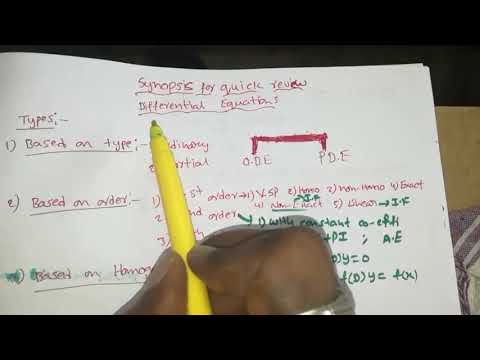 Synopsis for quick review
Differential Equations
Types:-
1) Based on type:-
O.D.E P.D.E
2) Based on order:- 1) st order→1) V.SP 2) Homo 3) non-Homo 4) Exact
4) Non-Exact →I.F 5) linear→I.F
2) nd order 1) with constant co-effi
+PI ; A.E
)y=0
Based on Homog f(D)y= f(x)